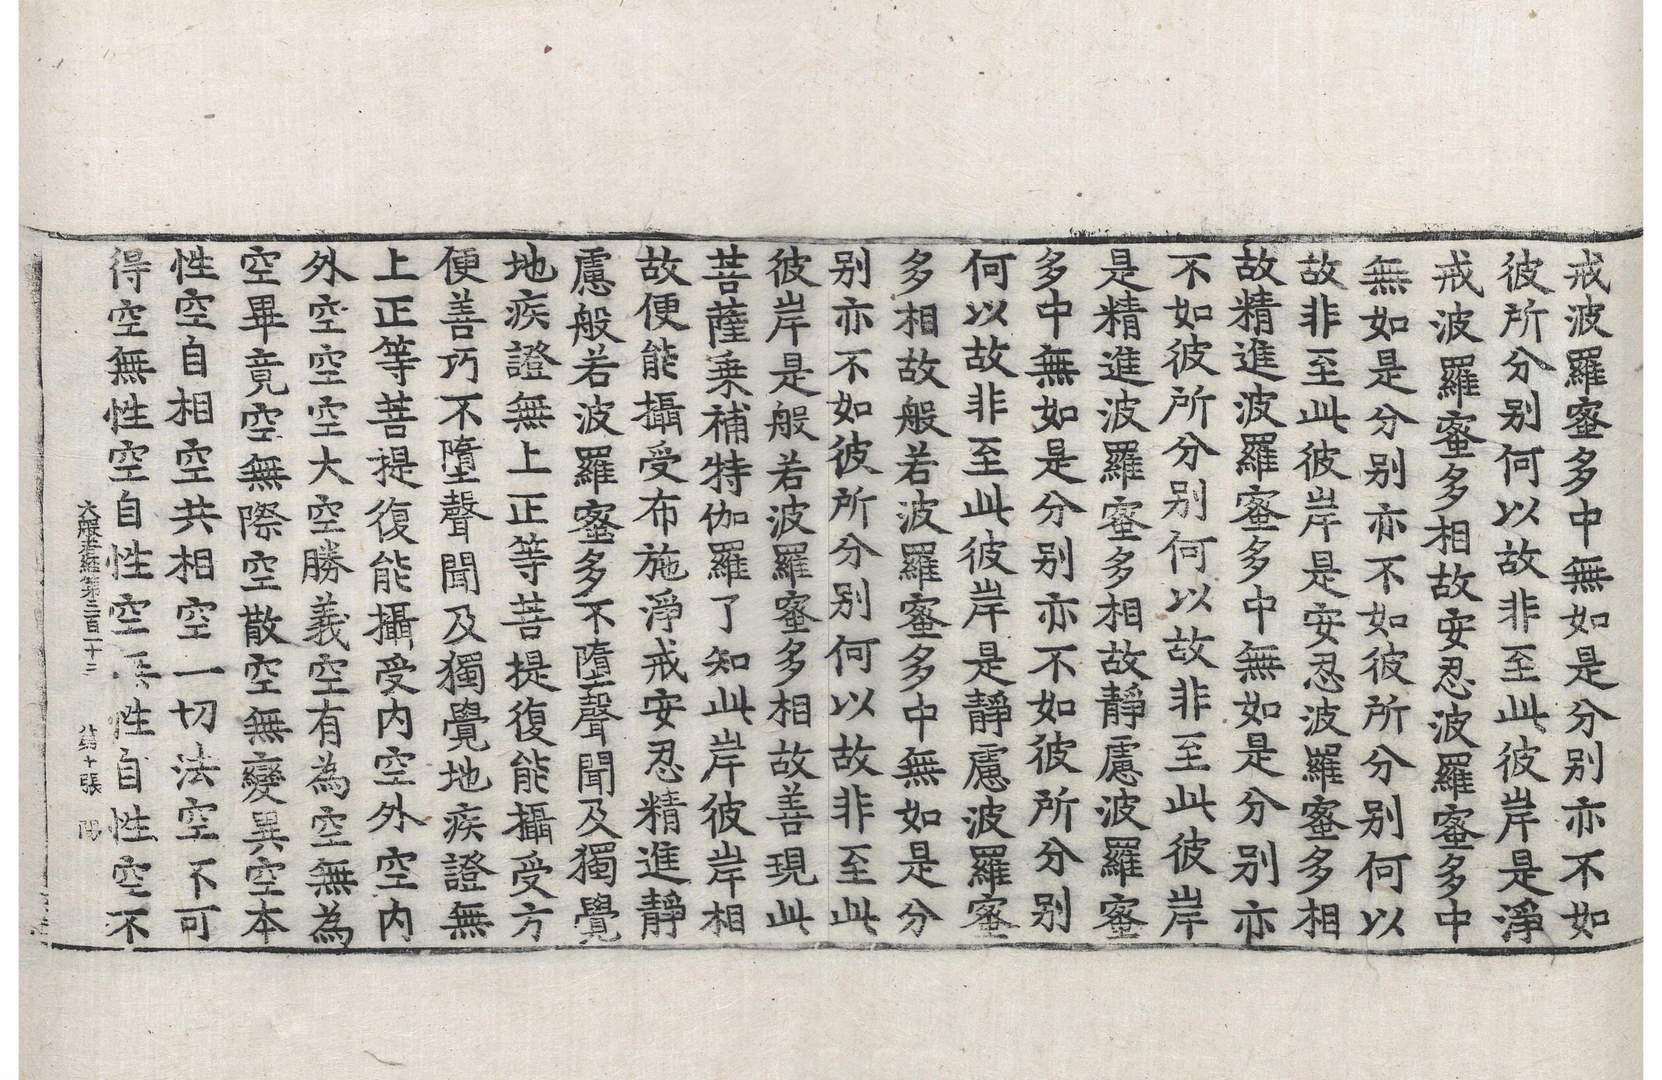 戒波羅蜜多中無如是分別亦不如
彼所分別何以故非至此彼岸是淨
戒波羅蜜多相故安忍波羅蜜多中
無如是分別亦不如彼所分別何以
故非至此彼岸是安忍波羅蜜多相
故精進波羅蜜多中無如是分別亦
不如彼所分別何以故非至此彼岸
是精進波羅蜜多相故靜慮波羅蜜
多中無如是分別亦不如彼所分別
何以故非至此彼岸是靜慮波羅蜜
多相故般若波羅蜜多中無如是分
別亦不如彼所分別何以故非至此
彼岸是般若波羅蜜多相故善現此
菩薩乘補特伽羅了知此岸彼岸相
故便能攝受布施淨戒安忍精進靜
慮般若波羅蜜多不墮聲聞及獨覺
地疾證無上正等菩提復能攝受方
便善巧不墮聲聞及獨覺地疾證無
上正等菩提復能攝受內空外空內
外空空空大空勝義空有為空無為
空畢竟空無際空散空無變異空本
性空自相空共相空一切法空不可
得空無性空自性空無性自性空不
大般若經第三百一十三 第十張 陽